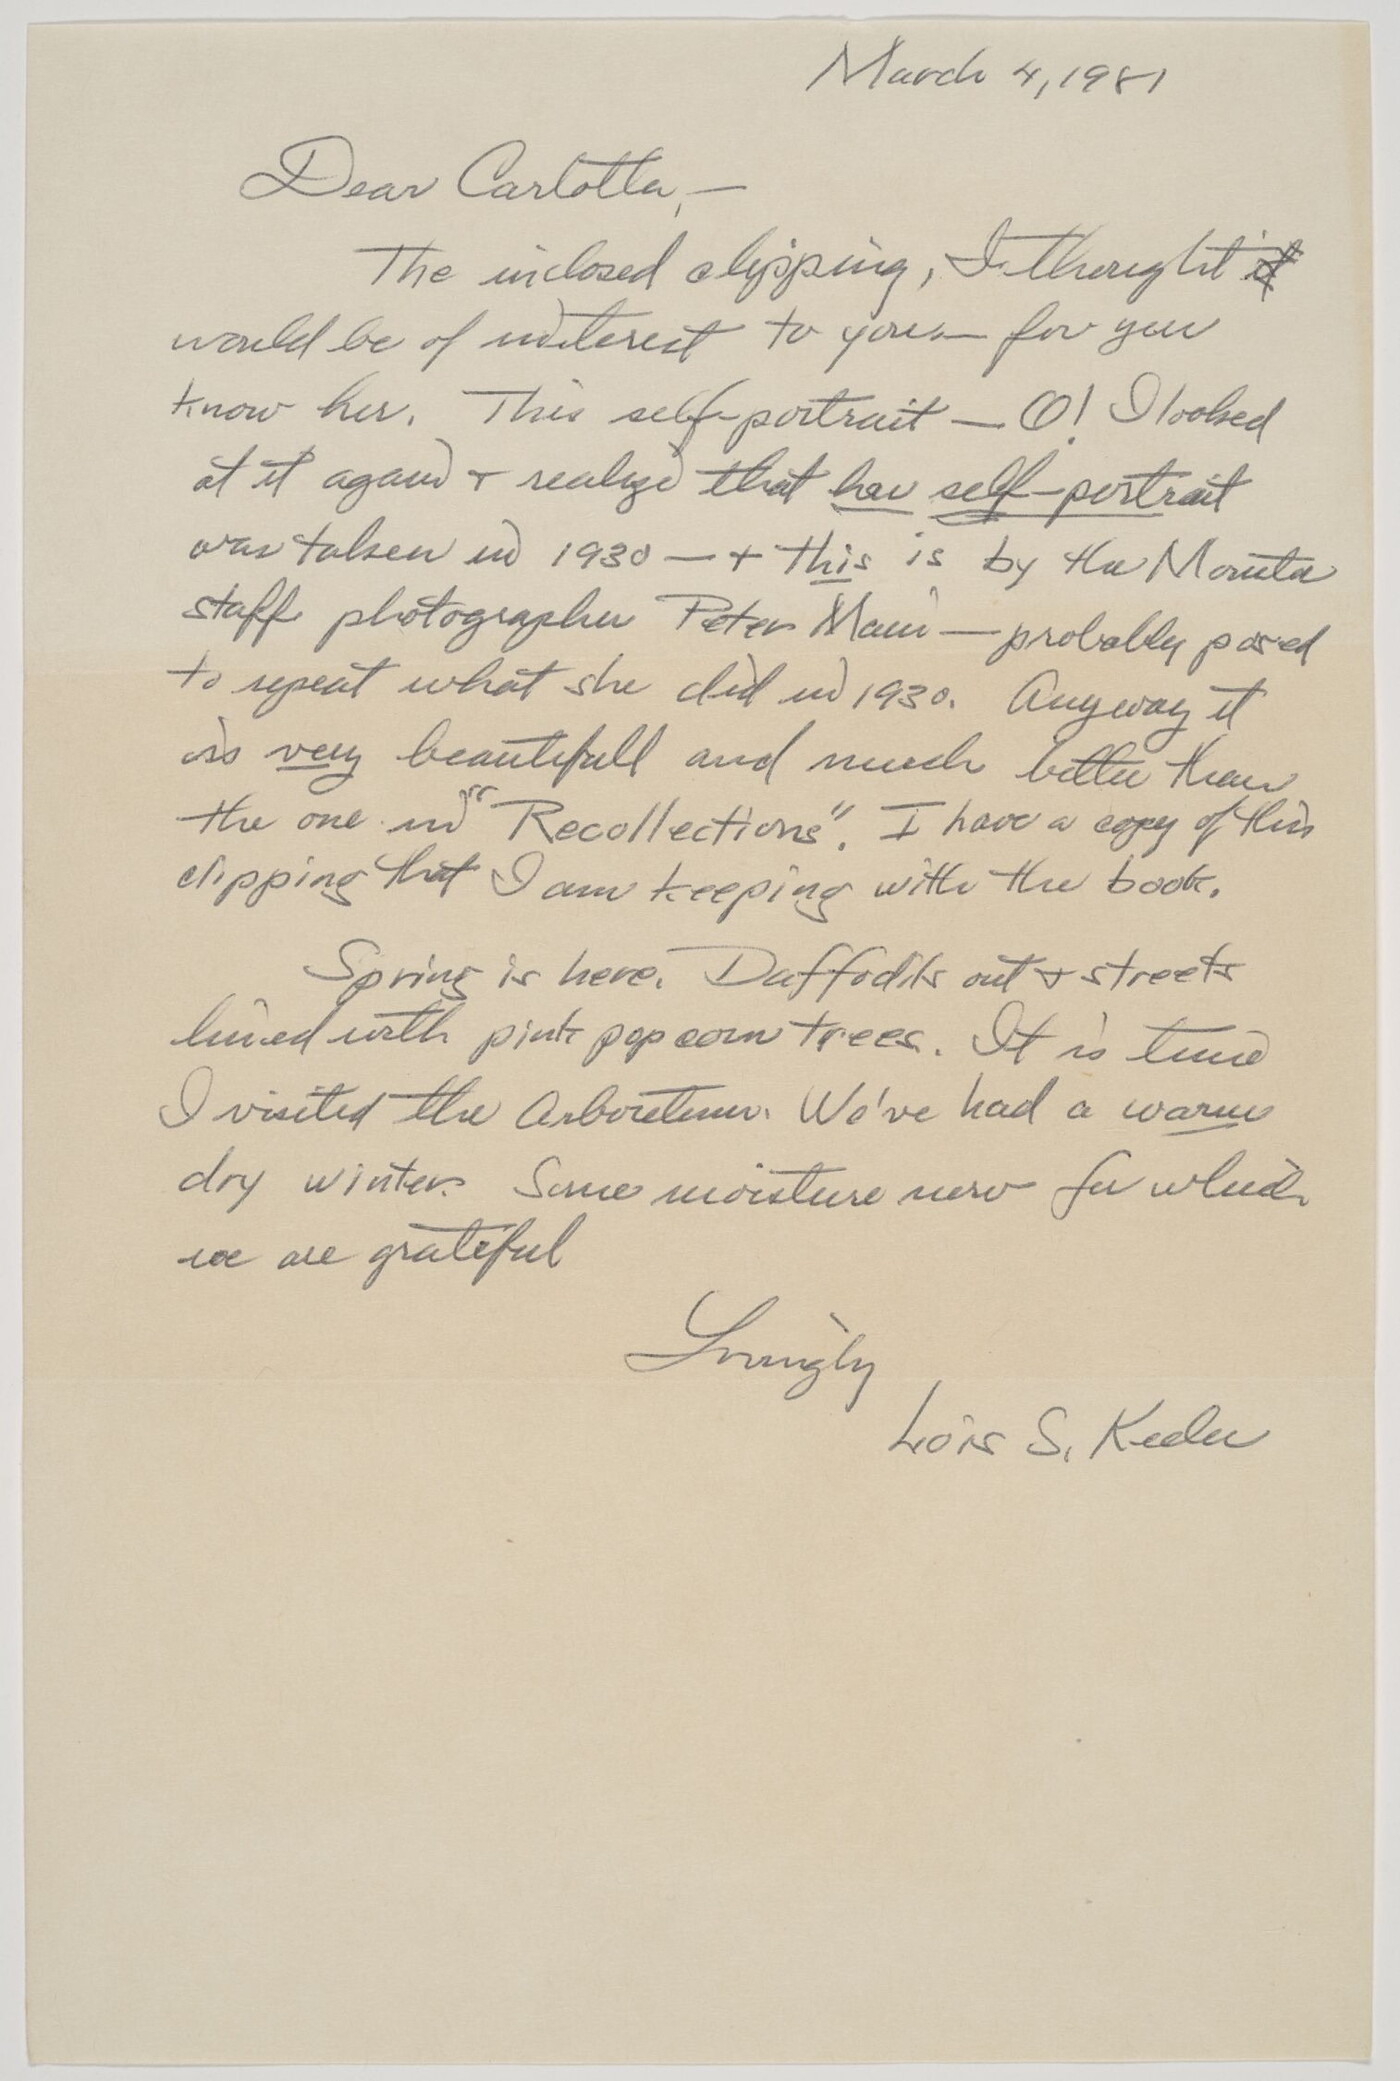 March 4, 1981
Dear Carlotta, —
The inclosed clipping, I thought it
would be of interest to you — for you
know her. This self-portrait — O! I looked
at it again & realize that her self-portrait
was taken in 1930 — + this is by the Monitor
staff photographer Peter Main — probably posed
to repeat what she did in 1930. Anyway it
is very beautifull and much better than
the one in "Recollections". I have a copy of this
clipping that I am keeping with the book.
Spring is here. Daffodils out & streets
lined with pink popcorn trees. It is time
I visited the Arboretum. We've had a warm
dry winter. Some moisture now for which
we are grateful
Lovingly
Lois S. Keeler